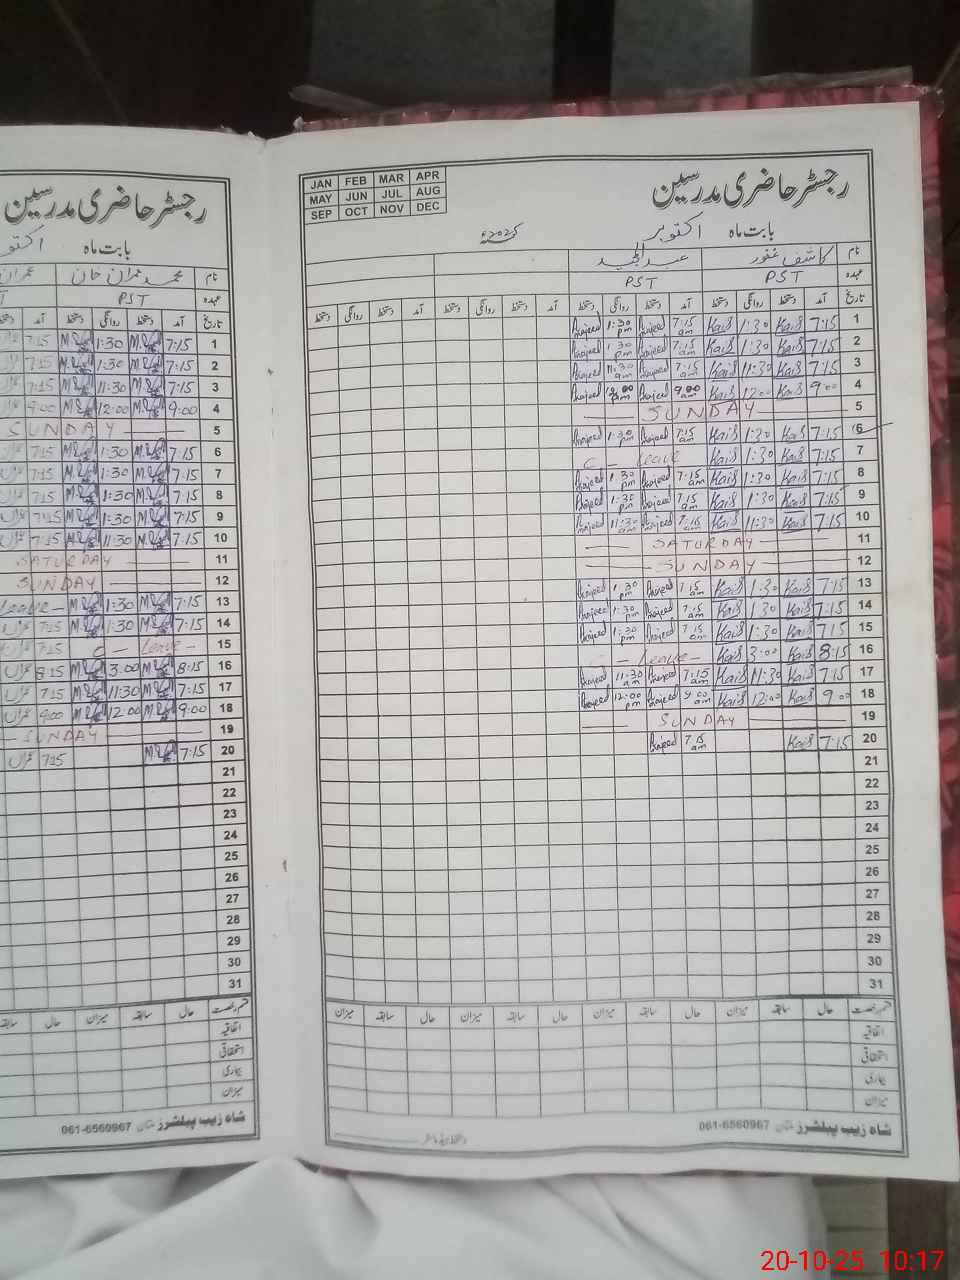 رجسٹر حاضری مدرسین
بابت ماہ اکتوبر
نام محمد عمران خان
عہدہ PST
تاریخ آمد دستخط روانگی دستخط آمد
1 7:15 1:30 7:15
2 7:15 1:30 7:15
3 7:15 11:30 7:15
4 9:00 12:00 9:00
5 SUNDAY
6 7:15 1:30 7:15
7 7:15 1:30 7:15
8 7:15 1:30 7:15
9 7:15 1:30 7:15
10 7:15 11:30 7:15
11 SATURDAY
12 SUNDAY
13 7:15 1:30 Leave
14 7:15 1:30 7:15
15 C - Leave - 7:15
16 8:15 3:00 8:15
17 7:15 11:30 7:15
18 9:00 12:00 9:00
19 SUNDAY
20 7:15 7:15
21
22
23
24
25
26
27
28
29
30
31
قسم رخصت حال سابقہ میزان حال سابقہ
اتفاقیہ
استحقاقی
بیماری
میزان
شاہ زیب پبلشرز ملتان 061-6560967
JAN FEB MAR APR
MAY JUN JUL AUG
SEP OCT NOV DEC
رجسٹر حاضری مدرسین
بابت ماہ اکتوبر 2025ء
نام کاشف غفور عبدالمجید
عہدہ PST PST
تاریخ آمد دستخط روانگی دستخط آمد دستخط روانگی دستخط آمد دستخط روانگی دستخط آمد دستخط روانگی دستخط
1 7:15 Kais 1:30 Kais 7:15 am Amjeed 1:30 pm Amjeed
2 7:15 Kais 1:30 Kais 7:15 am Amjeed 1:30 pm Amjeed
3 7:15 Kais 11:30 Kais 7:15 am Amjeed 11:30 am Amjeed
4 9:00 Kais 12:00 Kais 9:00 am Amjeed 12:00 pm Amjeed
5 SUNDAY
6 7:15 Kais 1:30 Kais 7:15 am Amjeed 1:30 pm Amjeed
7 7:15 Kais 1:30 Kais C - Leave
8 7:15 Kais 1:30 Kais 7:15 am Amjeed 1:30 pm Amjeed
9 7:15 Kais 1:30 Kais 7:15 am Amjeed 1:30 pm Amjeed
10 7:15 Kais 11:30 Kais 7:15 am Amjeed 11:30 am Amjeed
11 SATURDAY
12 SUNDAY
13 7:15 Kais 1:30 Kais 7:15 am Amjeed 1:30 pm Amjeed
14 7:15 Kais 1:30 Kais 7:15 am Amjeed 1:30 pm Amjeed
15 7:15 Kais 1:30 Kais 7:15 am Amjeed 1:30 pm Amjeed
16 8:15 Kais 3:00 Kais C - Leave -
17 7:15 Kais 11:30 Kais 7:15 am Amjeed 11:30 am Amjeed
18 9:00 Kais 12:00 Kais 9:00 am Amjeed 12:00 pm Amjeed
19 SUNDAY
20 7:15 Kais 7:15 am Amjeed
21
22
23
24
25
26
27
28
29
30
31
قسم رخصت حال سابقہ میزان حال سابقہ میزان حال سابقہ میزان حال سابقہ میزان
اتفاقیہ
استحقاقی
بیماری
میزان
دستخط ہیڈ ماسٹر
شاہ زیب پبلشرز ملتان 061-6560967
20-10-25 10:17